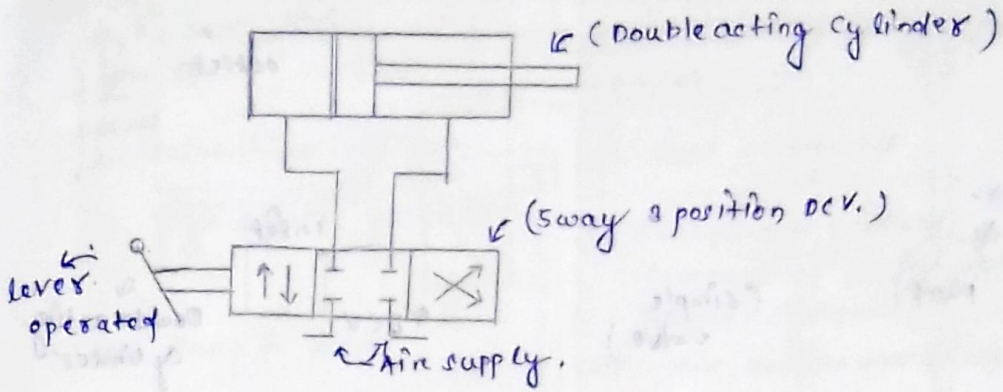 (Double acting cylinder)
(5way 3 position DCV.)
lever
operated
Air supply.